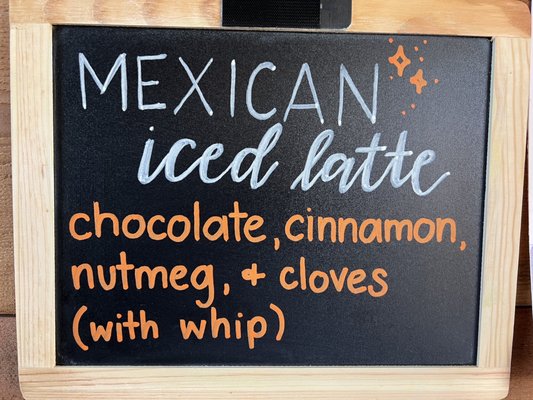 MEXICAN
iced latte
chocolate, cinnamon,
nutmeg, + cloves
(with whip)